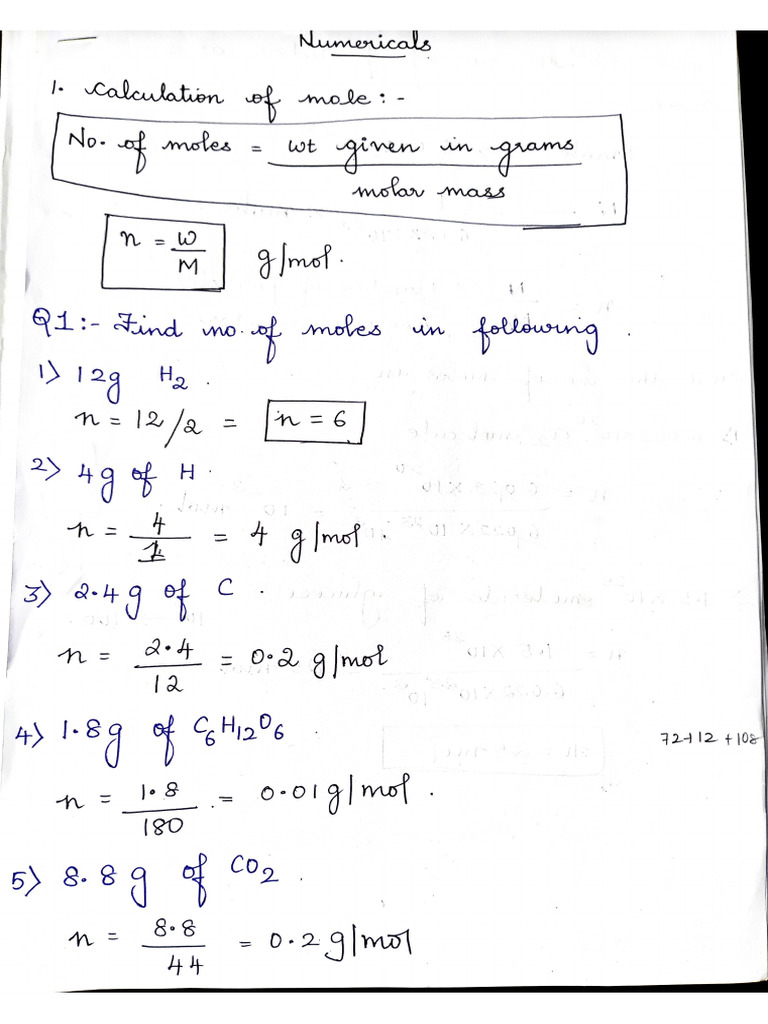 Numericals
1. Calculation of mole :-
No. of moles = wt given in grams
molar mass
n = W
M
g/mol.
Q1:- Find no. of moles in following.
1) 12g H2.
n = 12/2 = n = 6
2) 4g of H.
n = 4
1
= 4 g/mol.
3) 2.4g of C.
n = 2.4
12
= 0.2 g/mol
4) 1.8g of C6H12O6.
72+12+108
n = 1.8
180
= 0.01 g/mol.
5) 8.8g of CO2.
n = 8.8
44
= 0.2 g/mol